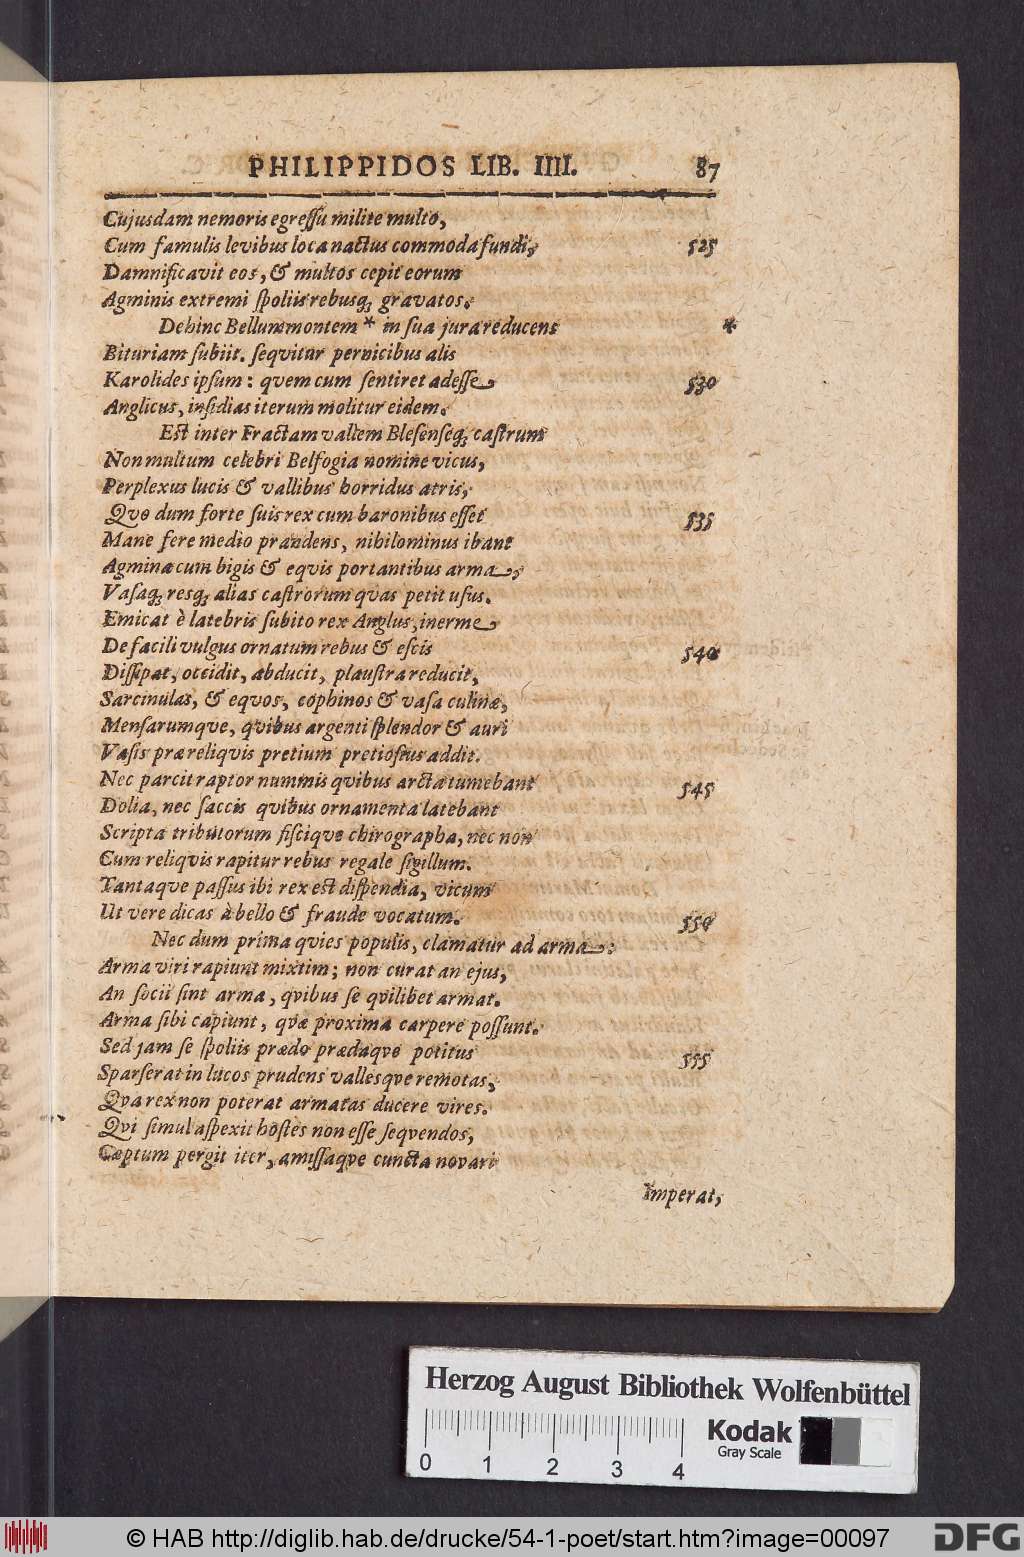 PHILIPPIDOS LIB. IIII. 87
Cujusdam nemoris egressu milite multo,
Cum famulis levibus loca nactus commoda fundi, 525
Damnificavit eos, & multos cepit eorum
Agminis extremi spoliis rebusq; gravatos.
Dehinc Bellummontem * in sua jura reducens *
Bituriam subiit. seqvitur pernicibus alis
Karolides ipsum: qvem cum sentiret adesse 530
Anglicus, insidias iterum molitur eidem.
Est inter Fractam vallem Blesenseq; castrum
Non multum celebri Belfogia nomine vicus,
Perplexus lucis & vallibus horridus atris,
Qvo dum forte suis rex cum baronibus esset 535
Mane fere medio prandens, nihilominus ibant
Agmina cum bigis & eqvis portantibus arma,
Vasaq; resq; alias castrorum qvas petit usus.
Emicat è latebris subito rex Anglus, inerme
De facili vulgus ornatum rebus & escis 540
Dissipat, occidit, abducit, plaustra reducit,
Sarcinulas, & eqvos, cophinos & vasa culinæ,
Mensarumqve, qvibus argenti splendor & auri
Vasis præ reliqvis pretium pretiosius addit.
Nec parcit raptor nummis qvibus arcta tumebant 545
Dolia, nec saccis qvibus ornamenta latebant
Scripta tributorum fisciqve chirographa, nec non
Cum reliqvis rapitur rebus regale sigillum.
Tantaqve passus ibi rex est dispendia, vicum
Ut vere dicas à bello & fraude vocatum. 550
Nec dum prima qvies populis, clamatur ad arma:
Arma viri rapiunt mixtim; non curat an ejus,
An socii sint arma, qvibus se qvilibet armat.
Arma sibi capiunt, qvæ proxima carpere possunt.
Sed jam se spoliis prædo prædaqve potitus 555
Sparserat in lucos prudens vallesqve remotas,
Qva rex non poterat armatas ducere vires.
Qvi simul aspexit hostes non esse seqvendos,
Cœptum pergit iter, amissaqve cuncta novari
Imperat,
Herzog August Bibliothek Wolfenbüttel
Kodak
Gray Scale
0 1 2 3 4
© HAB http://diglib.hab.de/drucke/54-1-poet/start.htm?image=00097
DFG